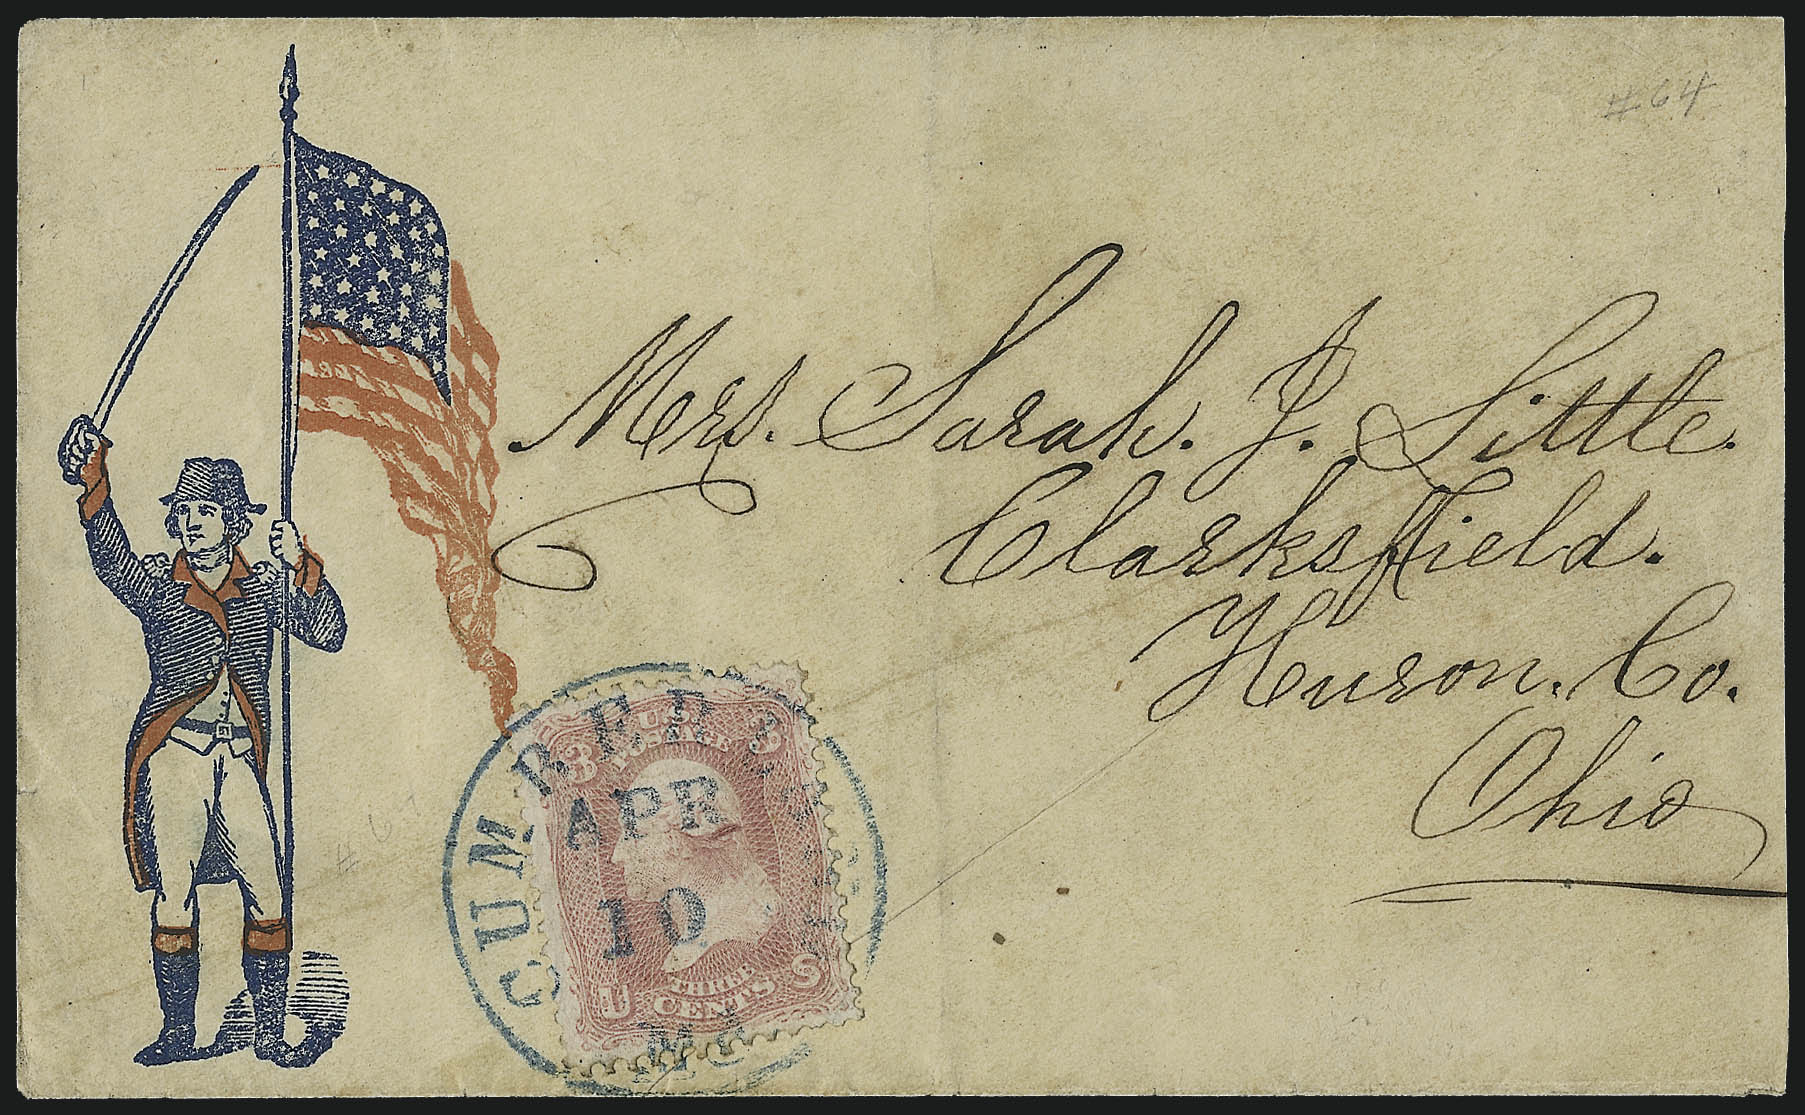 #64
Mrs. Sarah. J. Little.
Clarksfield.
Huron. Co.
Ohio
U.S.
POSTAGE
3 3
APR
10
U S
THREE
CENTS